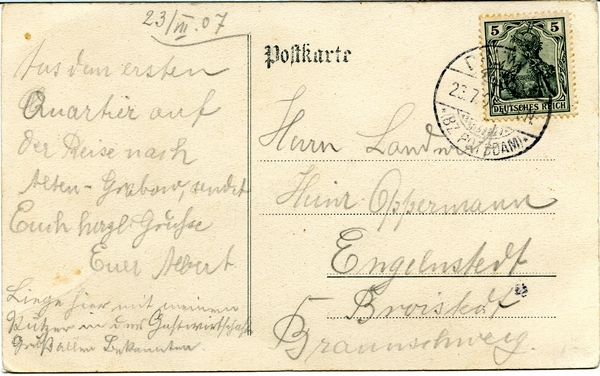 23/III.07
Aus dem ersten
Quartier auf
der Reise nach
Alten-Grabow, sendet
Euch herzl. Grüße
Euer Albert
Liege hier mit meinem
Putzer in der Gastwirtschaft
Gruß allen Bekannten.
Postkarte
5 5
DEUTSCHES REICH
23.7.
BZ. POTSDAM
Herrn Landwirt
Heinr. Oppermann
Engelnstedt
Broistedt
Braunschweig.